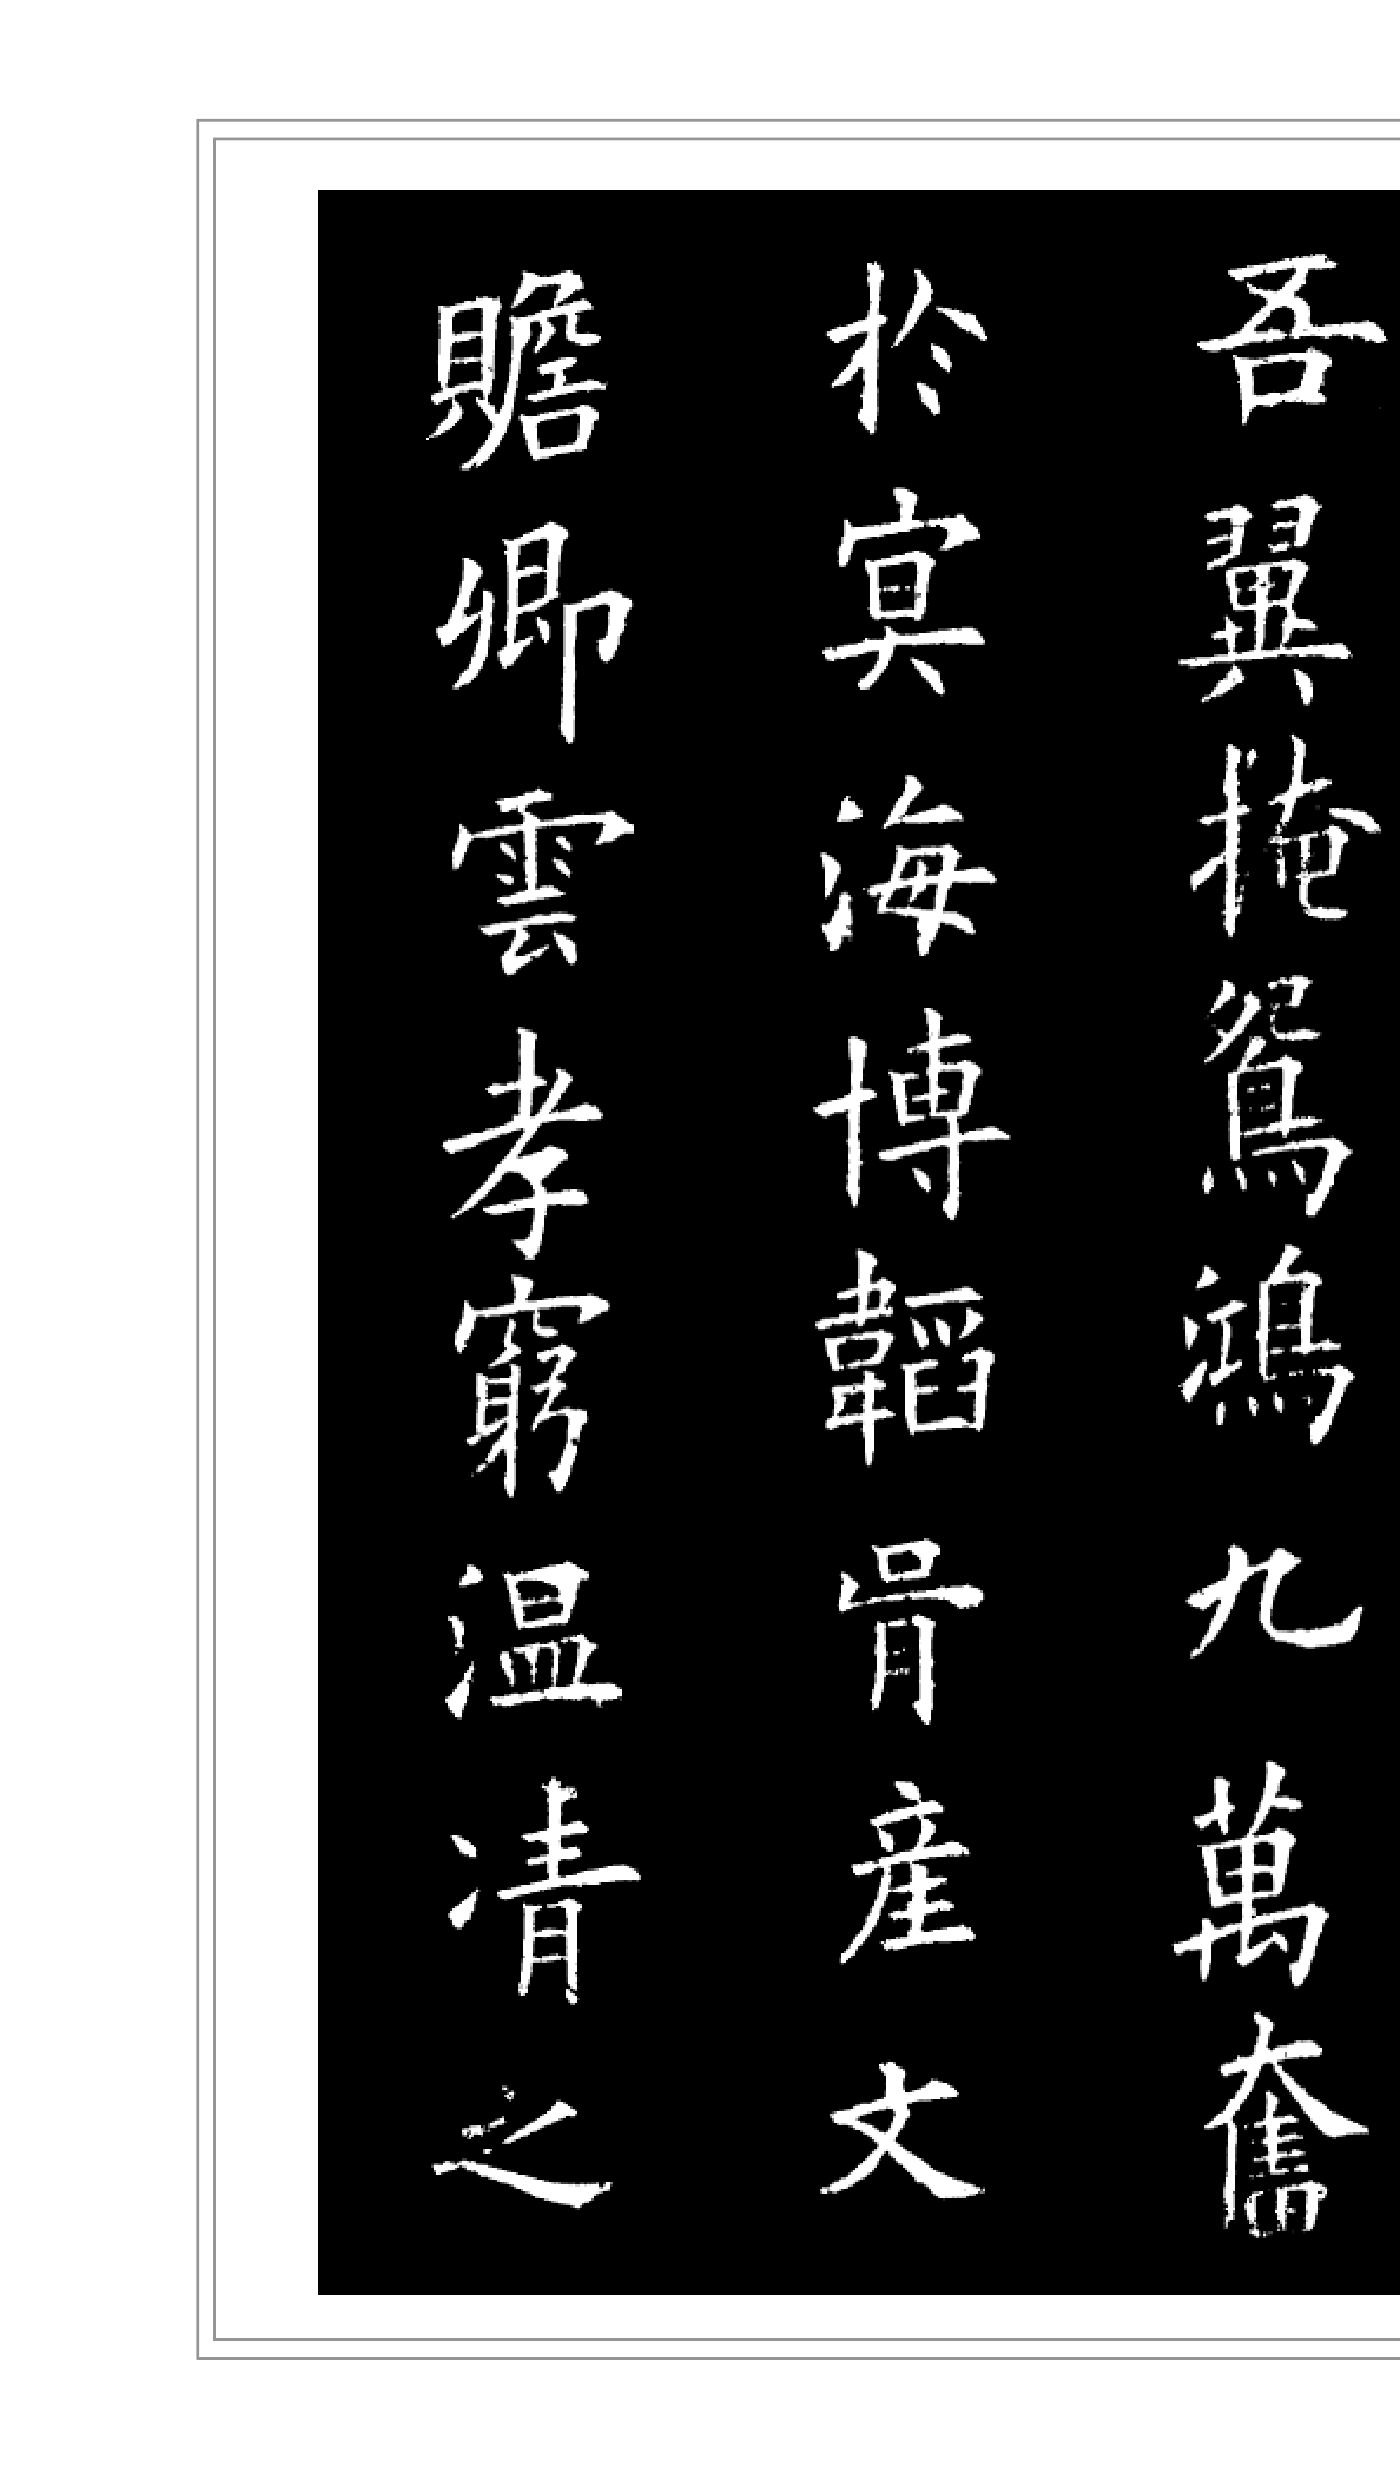 吾翼掩鴛鴻九萬奮
於寞海博韜骨産文
贍卿雲孝窮温凊之